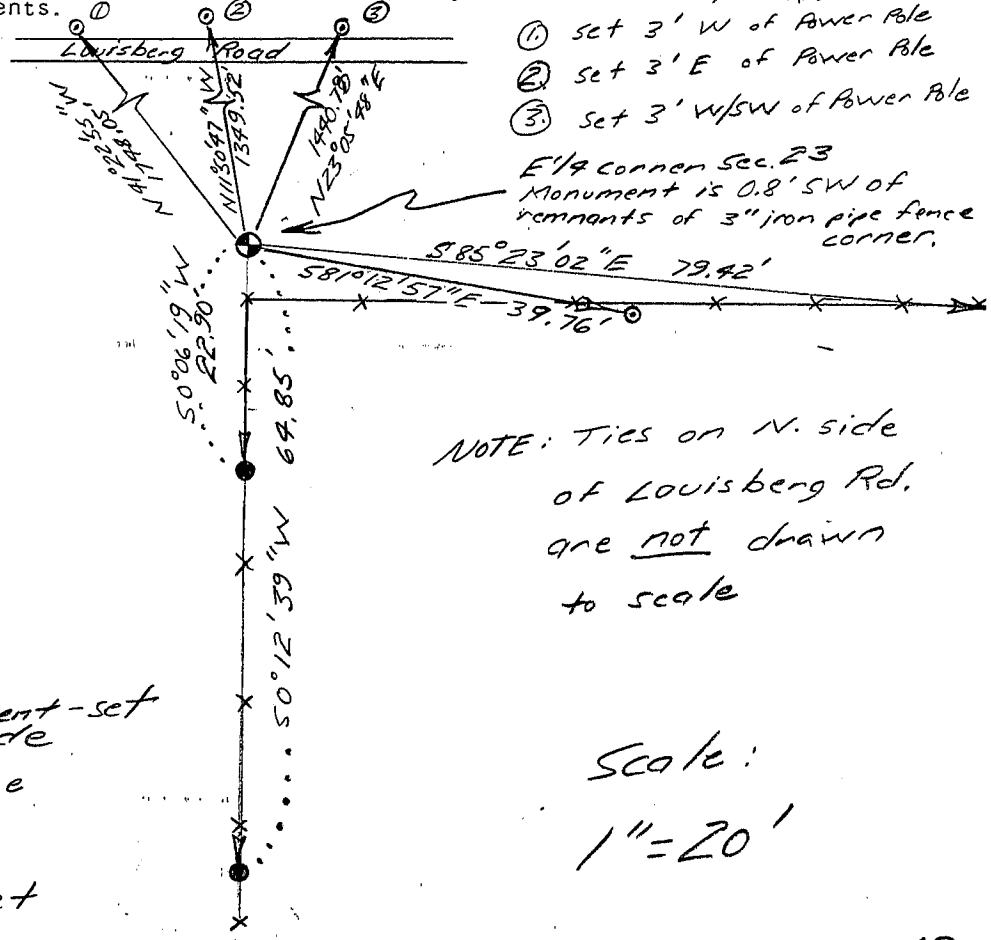 ents.
① ② ③
Louisberg Road
① set 3' W of Power Pole
② set 3' E of Power Pole
③ set 3' W/SW of Power Pole
N41°22'55"W
1798.05'
N11°30'47"W
1349.52
1440.78'
N23°05'48"E
E'/4 corner Sec. 23
Monument is 0.8' SW of
remnants of 3" iron pipe fence
corner.
S85°23'02"E 79.42'
S81°12'57"E-39.76'
S0°06'19"W
22.90'
64.85'
S0°12'39"W
NOTE: Ties on N. side
of Louisberg Rd.
are not drawn
to scale
ent-set
de
e
et
Scale:
1"=20'